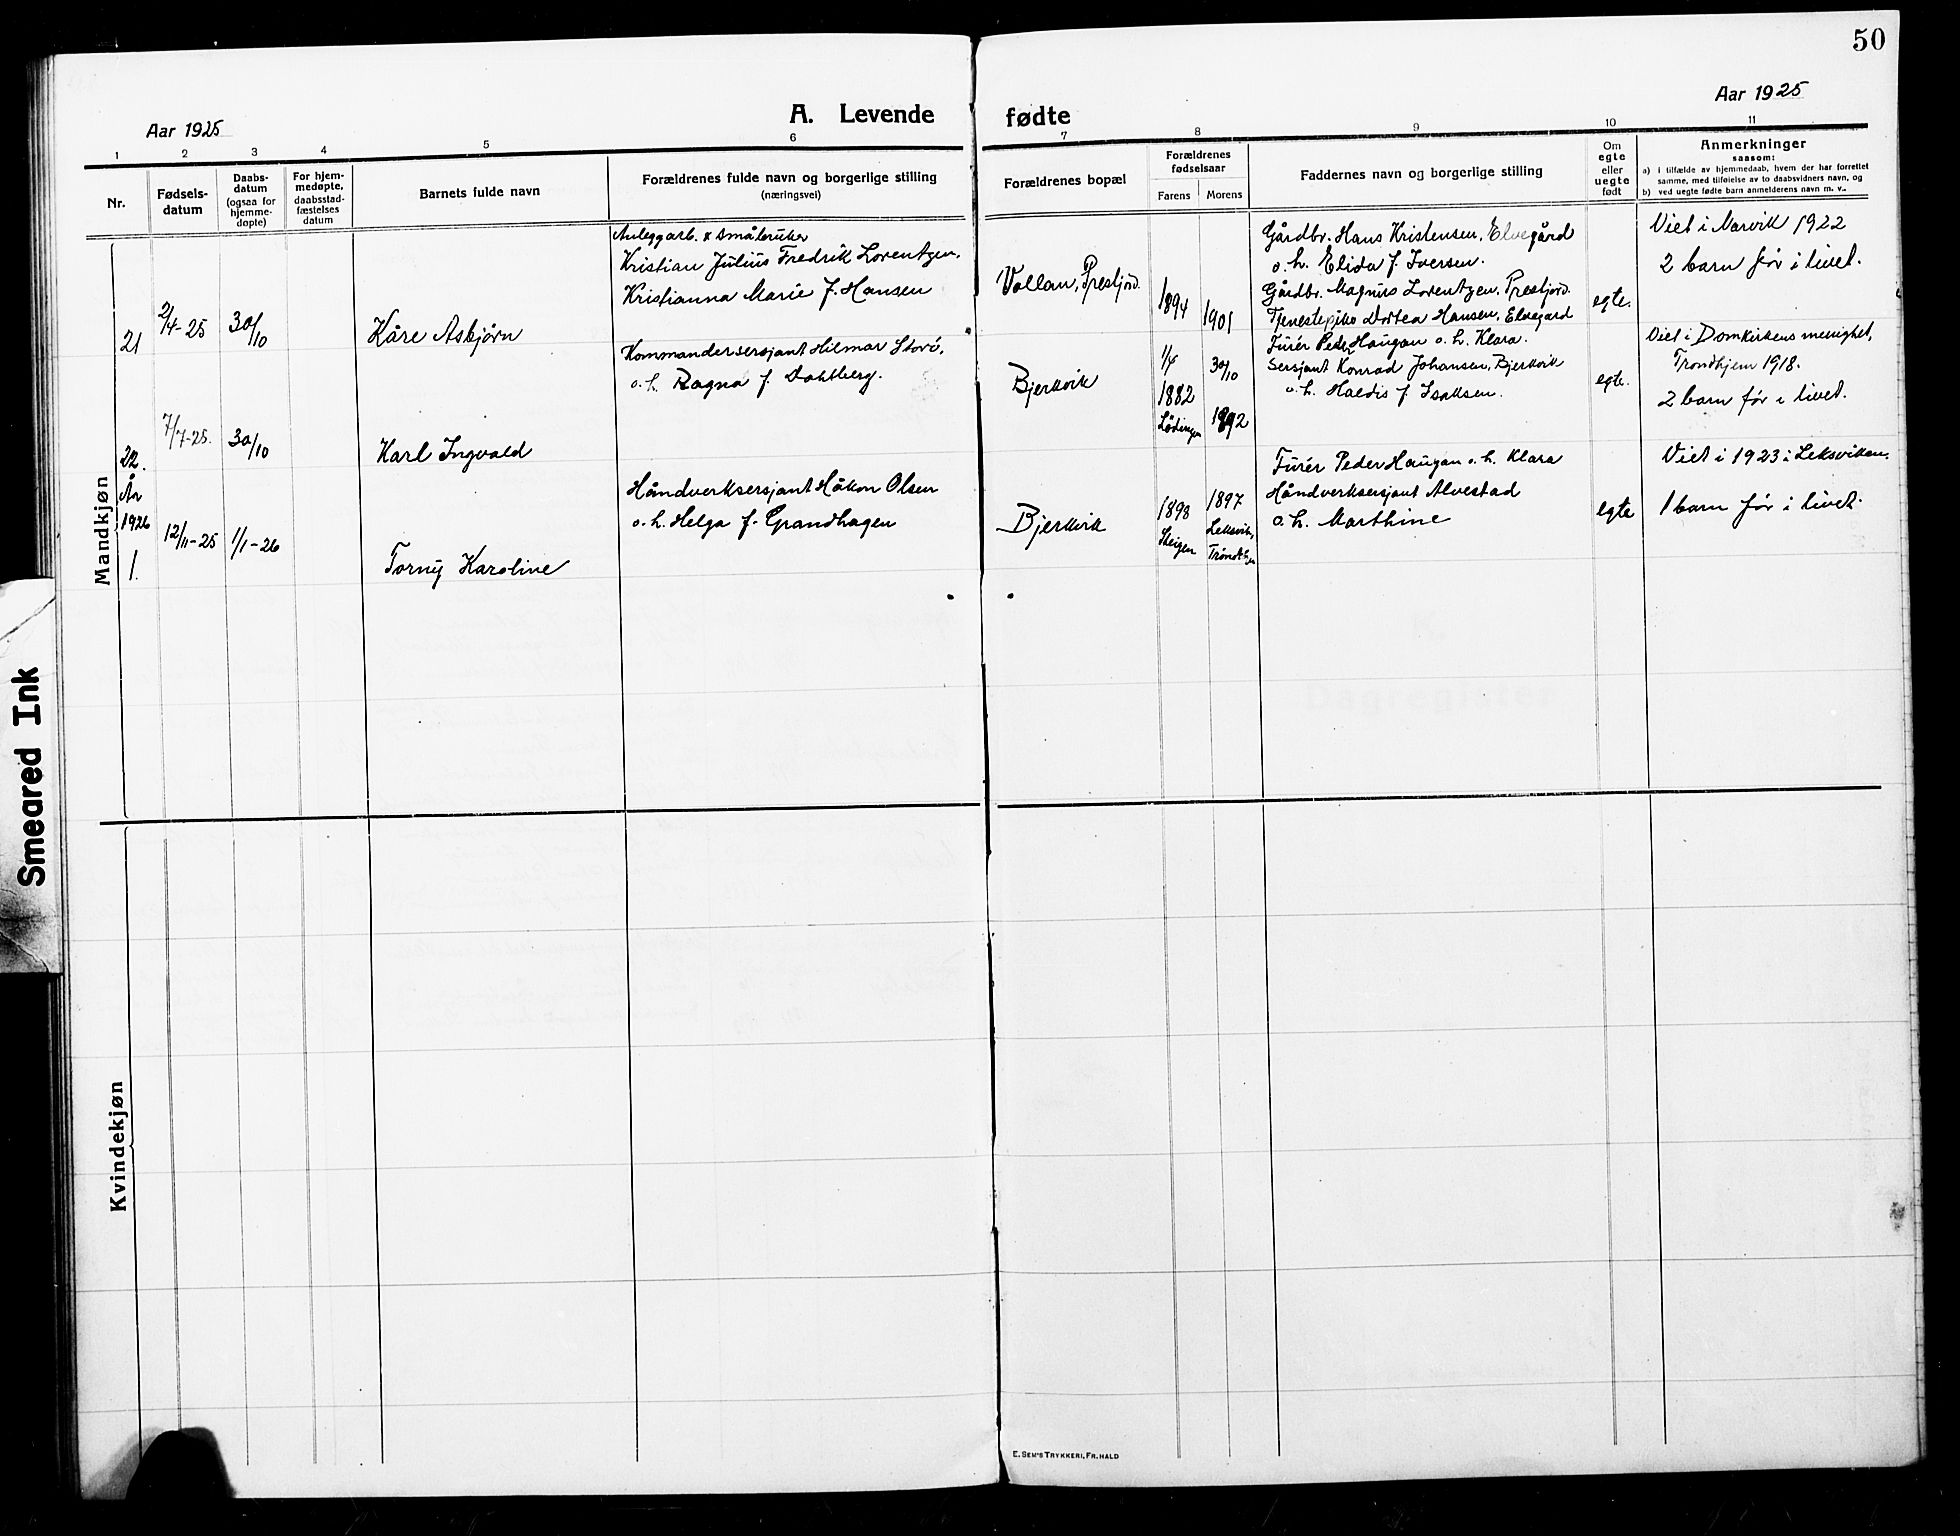 50
Aar 1925
A. Levende fødte
Aar 1925
1 2 3 4 5 6 7 8 9 10 11
Nr.
Fødsels-
datum
Daabs-
datum
(ogsaa for
hjemme-
døpte)
For hjem-
medøpte,
daabsstad-
fæstelses
datum
Barnets fulde navn
Forældrenes fulde navn og borgerlige stilling
(næringsvei)
Forældrenes bopæl
Forældrenes
fødselsaar
Farens Morens
Faddernes navn og borgerlige stilling
Om
egte
eller
uegte
født
Anmerkninger
saasom:
a) i tilfælde av hjemmedaab, hvem der har forrettet
samme, med tilføielse av to daabsvidners navn, og
b) ved uegte fødte barn anmelderens navn m. v..
Mandkjøn
21
2/4-25
30/10
Kåre Asbjørn
Anleggarb. & småbruker
Kristian Julius Fredrik Lorentzen.
Kristianna Marie f. Hansen
Vollan, Prestjord.
1894
1901
Gårdbr. Hans Kristensen, Elvegård
o. h. Elida f. Iversen.
Gårdbr. Magnus Lorentzen, Prestjord.
Tjenestepike Dortea Hansen, Elvegård
egte.
Viet i Narvik 1922
2 barn før i livet.
22.
7/7-25.
30/10
Karl Ingvald
Kommandersersjant Hilmar Storø,
o. h. Ragna f. Dahlberg.
Bjerkvik
1/4
1882
Lødingen
30/10
1892
Furér Peder Haugan o. h. Klara.
Sersjant Konrad Johansen, Bjerkvik
o. h. Haldis f. Isaksen.
egte.
Viet i Domkirkens menighet,
Trondhjem 1918.
2 barn før i livet.
År
1926
1.
12/11-25
1/1-26
Torny Karoline
Håndverksersjant Håkon Olsen
o. h. Helga f. Grandhagen
Bjerkvik
1898
Steigen
1897
Leksvik,
Furér Peder Haugan o. h. Klara
Håndverksersjant Alvestad
o. h. Marthine
egte
Viet i 1923 i Leksviken.
1 barn før i livet.
Kvindekjøn
Smeared Ink
Dagregister
E. Sem's Trykkeri, Fr.hald